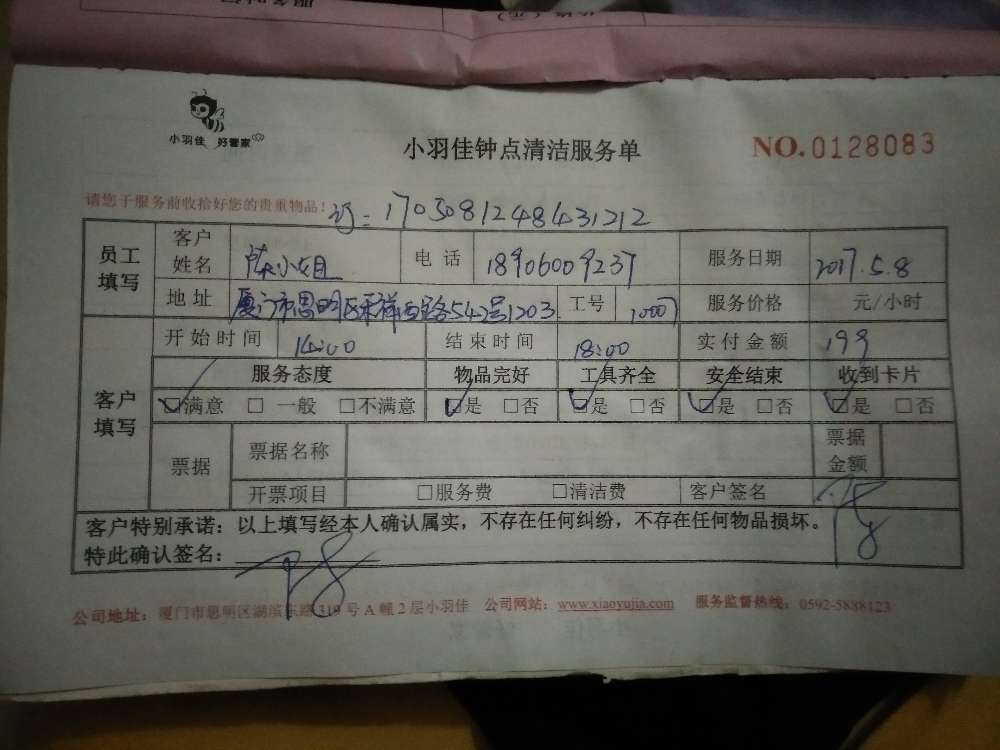 小羽佳 好管家
小羽佳钟点清洁服务单
NO.0128083
请您于服务前收拾好您的贵重物品!
170508124843121 2
员工填写 客户姓名 陈小姐 电话 18906009237 服务日期 2017.5.8
地址 厦门市思明区禾祥西路542号1203 工号 10007 服务价格 元/小时
客户填写 开始时间 14:00 结束时间 18:00 实付金额 199
服务态度 物品完好 工具齐全 安全结束 收到卡片
☑满意 □一般 □不满意 ☑是 □否 ☑是 □否 ☑是 □否 ☑是 □否
票据 票据名称 票据金额
开票项目 □服务费 □清洁费 客户签名
客户特别承诺:以上填写经本人确认属实,不存在任何纠纷,不存在任何物品损坏。
特此确认签名:
公司地址:厦门市思明区湖滨东路319号A幢2层小羽佳 公司网站:www.xiaoyujia.com 服务监督热线:0592-5888123